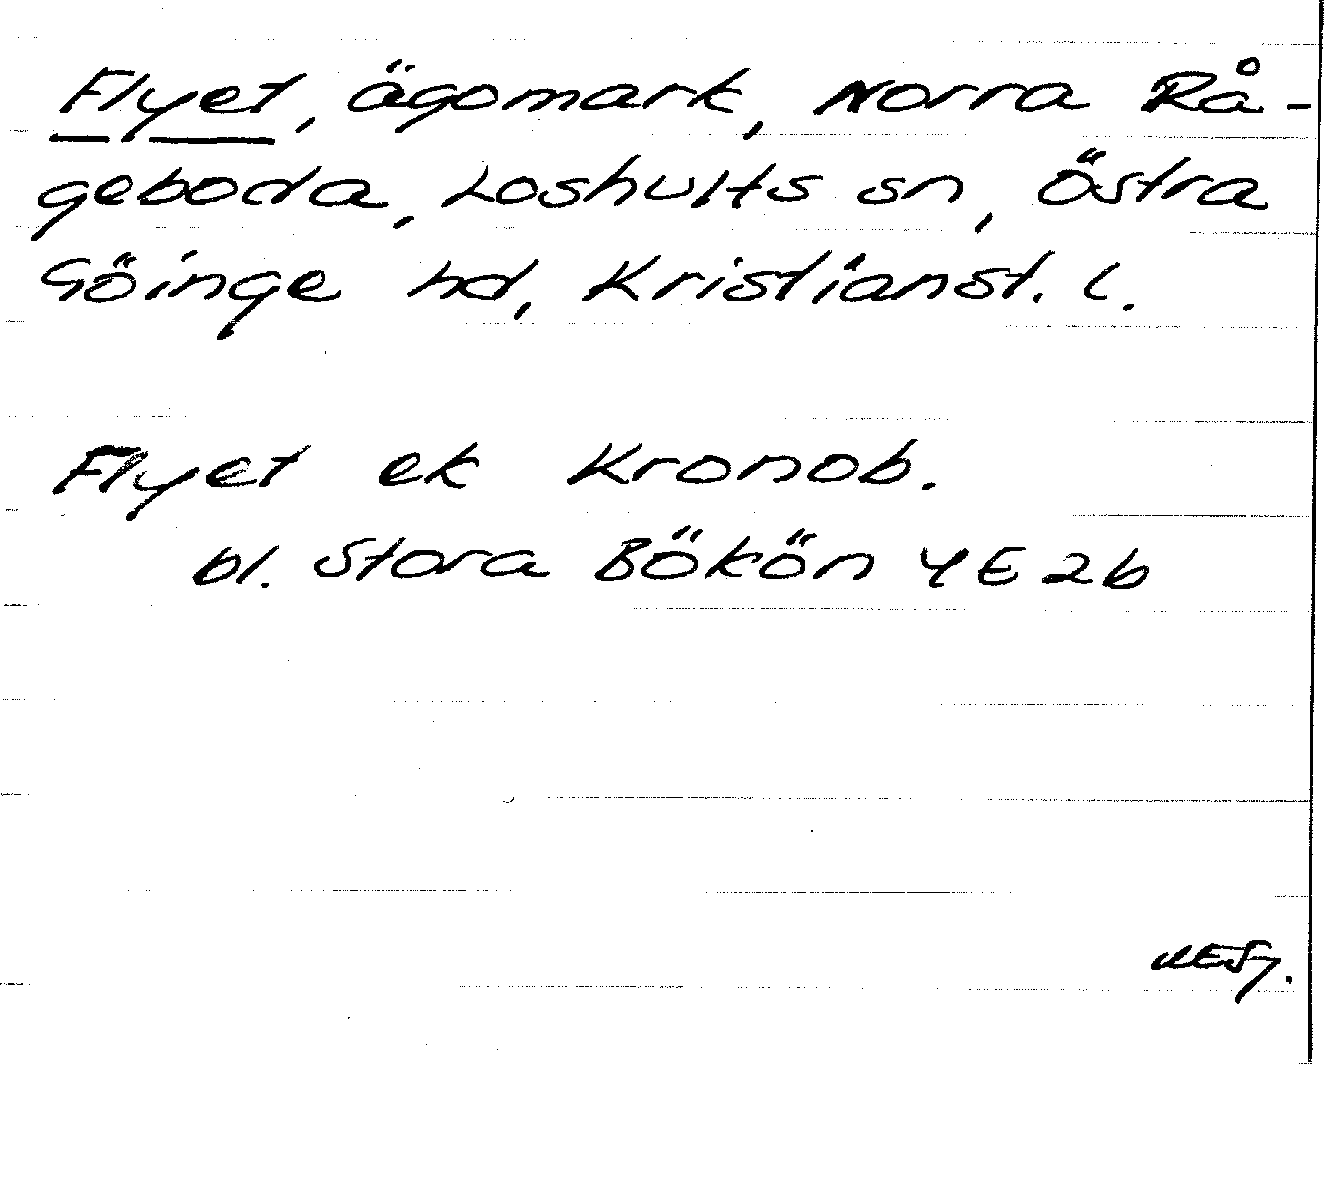 Flyet, ägomark, Norra Rå-
geboda, Loshults sn, Östra
Göinge hd, Kristianst. l.
Flyet ek Kronob.
bl. Stora Bökön 4E2b